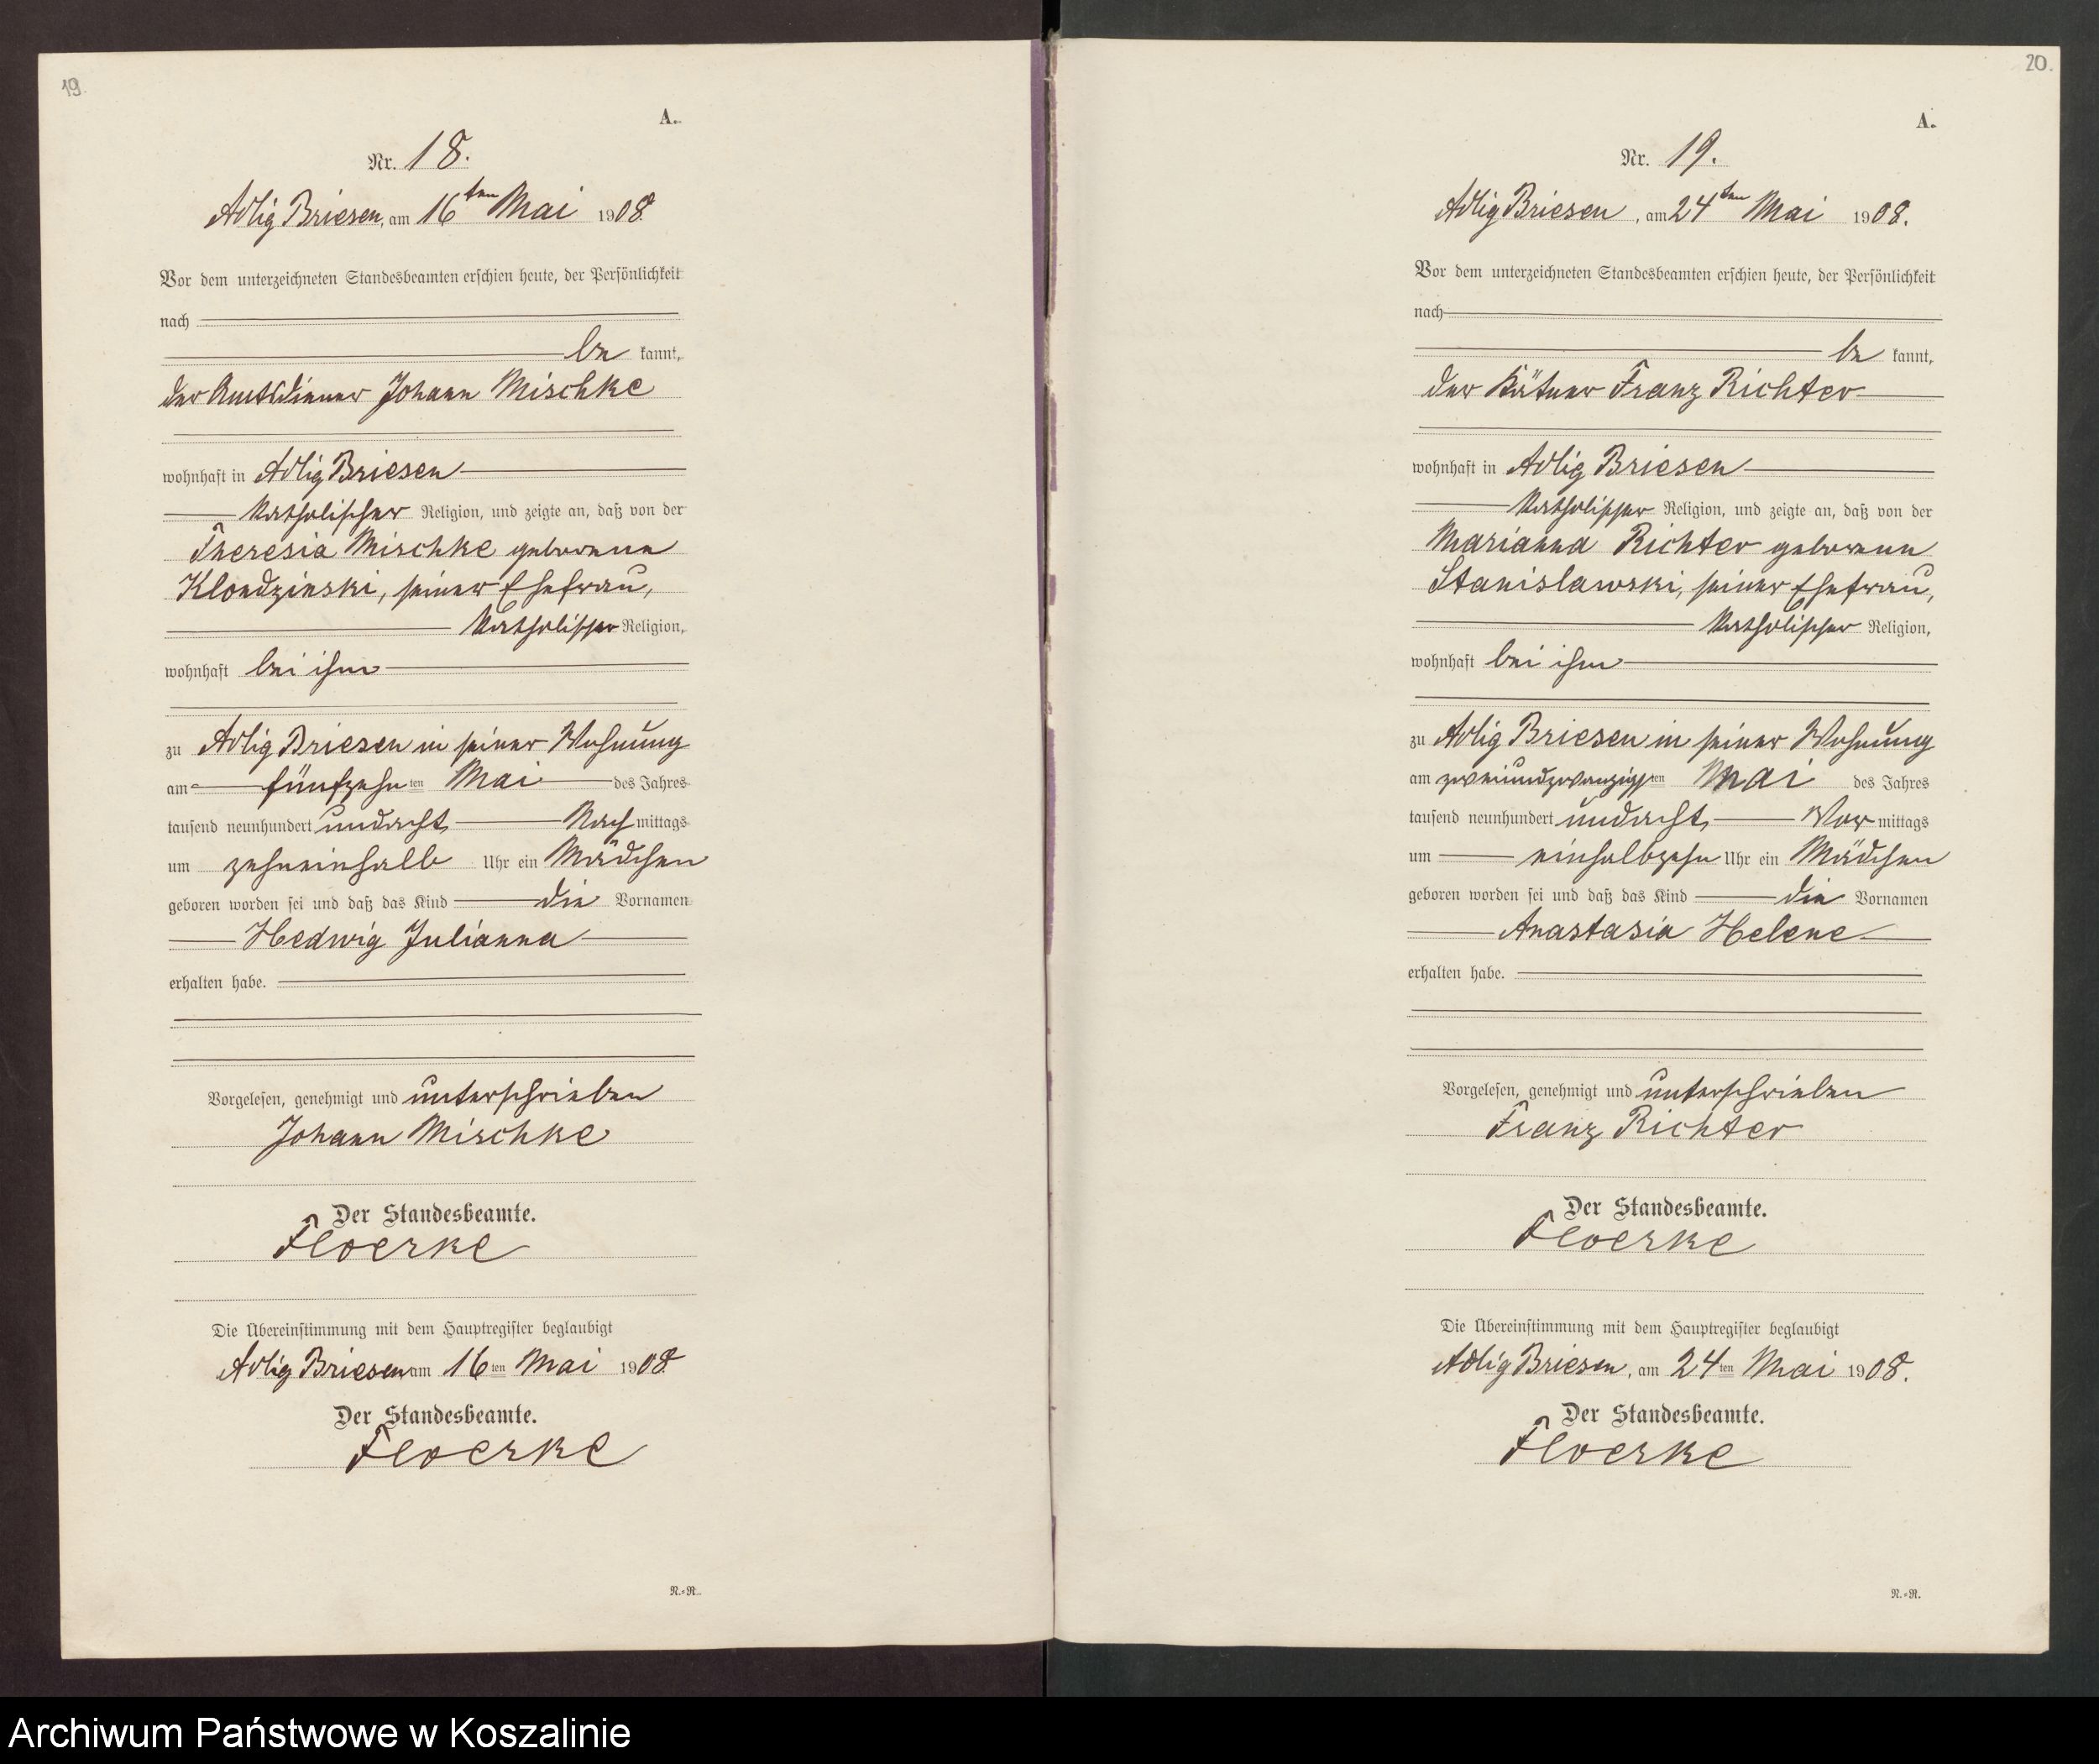 19.
A.
Nr. 18.
Adlig Briesen, am 16ten Mai 1908.
Vor dem unterzeichneten Standesbeamten erschien heute, der Persönlichkeit
nach
be kannt,
der Amtsdiener Johann Mischke
wohnhaft in Adlig Briesen
katholischer Religion, und zeigte an, daß von der
Theresia Mischke geborene
Klondzinski, seiner Ehefrau,
katholischer Religion,
wohnhaft bei ihm
zu Adlig Briesen in seiner Wohnung
am fünfzehn ten Mai des Jahres
tausend neunhundert und acht, Nach mittags
um zehneinhalb Uhr ein Mädchen
geboren worden sei und daß das Kind die Vornamen
Hedwig Julianna
erhalten habe.
Vorgelesen, genehmigt und unterschrieben
Johann Mischke
Der Standesbeamte.
Floerke
Die Übereinstimmung mit dem Hauptregister beglaubigt
Adlig Briesen am 16 ten Mai 1908.
Der Standesbeamte.
Floerke
N.=R.
20.
A.
Nr. 19.
Adlig Briesen, am 24ten Mai 1908.
Vor dem unterzeichneten Standesbeamten erschien heute, der Persönlichkeit
nach
be kannt,
der Kätner Franz Richter
wohnhaft in Adlig Briesen
katholischer Religion, und zeigte an, daß von der
Marianna Richter geborene
Stanislawski, seiner Ehefrau,
katholischer Religion,
wohnhaft bei ihm
zu Adlig Briesen in seiner Wohnung
am zweiundzwanzigs ten Mai des Jahres
tausend neunhundert und acht, Vor mittags
um einhalbzehn Uhr ein Mädchen
geboren worden sei und daß das Kind die Vornamen
Anastasia Helene
erhalten habe.
Vorgelesen, genehmigt und unterschrieben
Franz Richter
Der Standesbeamte.
Floerke
Die Übereinstimmung mit dem Hauptregister beglaubigt
Adlig Briesen, am 24 ten Mai 1908.
Der Standesbeamte.
Floerke
N.=R.
Archiwum Państwowe w Koszalinie